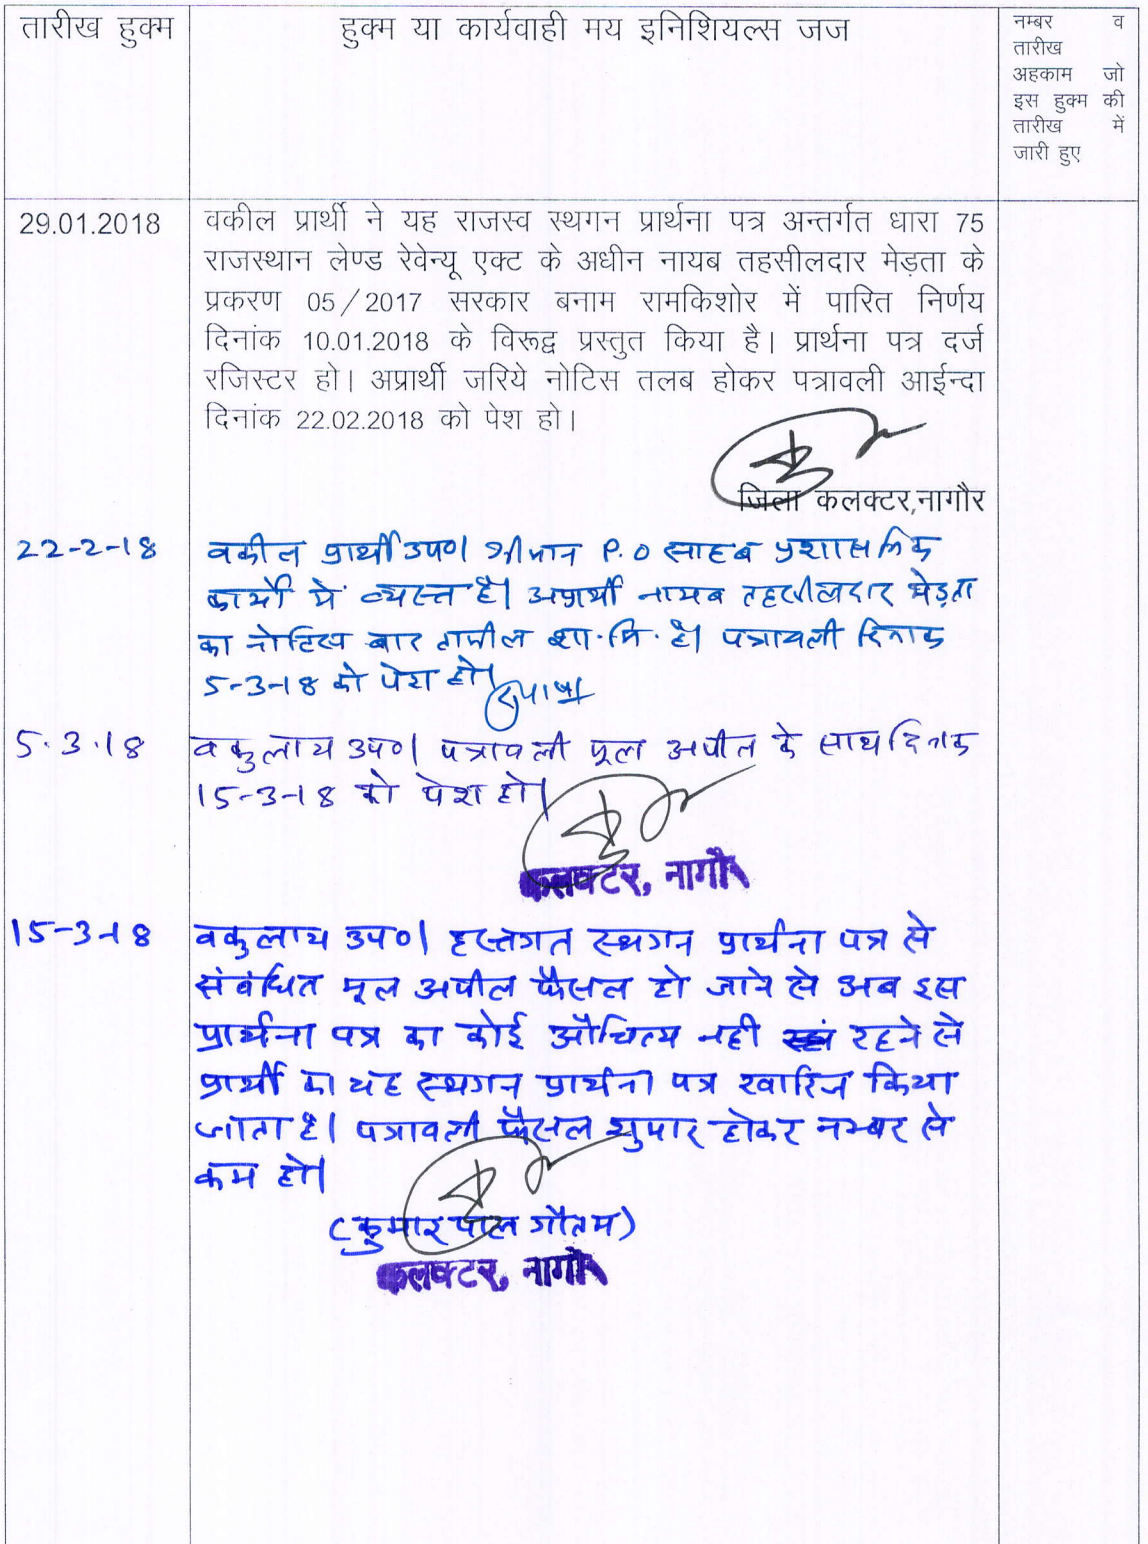 तारीख हुक्म
हुक्म या कार्यवाही मय इनिशियल्स जज
नम्बर व
तारीख
अहकाम जो
इस हुक्म की
तारीख में
जारी हुए
29.01.2018
वकील प्रार्थी ने यह राजस्व स्थगन प्रार्थना पत्र अन्तर्गत धारा 75
राजस्थान लेण्ड रेवेन्यू एक्ट के अधीन नायब तहसीलदार मेड़ता के
प्रकरण 05/2017 सरकार बनाम रामकिशोर में पारित निर्णय
दिनांक 10.01.2018 के विरूद्व प्रस्तुत किया है। प्रार्थना पत्र दर्ज
रजिस्टर हो। अप्रार्थी जरिये नोटिस तलब होकर पत्रावली आईन्दा
दिनांक 22.02.2018 को पेश हो।
जिला कलक्टर,नागौर
22-2-18
वकील प्रार्थी उप०। श्रीमान P.O साहब प्रशासनिक
कार्यो में व्यस्त है। अप्रार्थी नायब तहसीलदार मेड़ता
का नोटिस बाद तामील शा.मि. है। पत्रावली दिनांक
5-3-18 को पेश हो।
5.3.18
वकुलाय उप०। पत्रावली मूल अपील के साथ दिनांक
15-3-18 को पेश हो।
कलक्टर, नागौर
15-3-18
वकुलाय उप०। हस्तगत स्थगन प्रार्थना पत्र से
संबंधित मूल अपील फैसल हो जाने से अब इस
प्रार्थना पत्र का कोई औचित्य नही रहने से
प्रार्थी का यह स्थगन प्रार्थना पत्र खारिज किया
जाता है। पत्रावली फैसल शुमार होकर नम्बर से
कम हो।
(कुमार पाल गौतम)
कलक्टर, नागौर